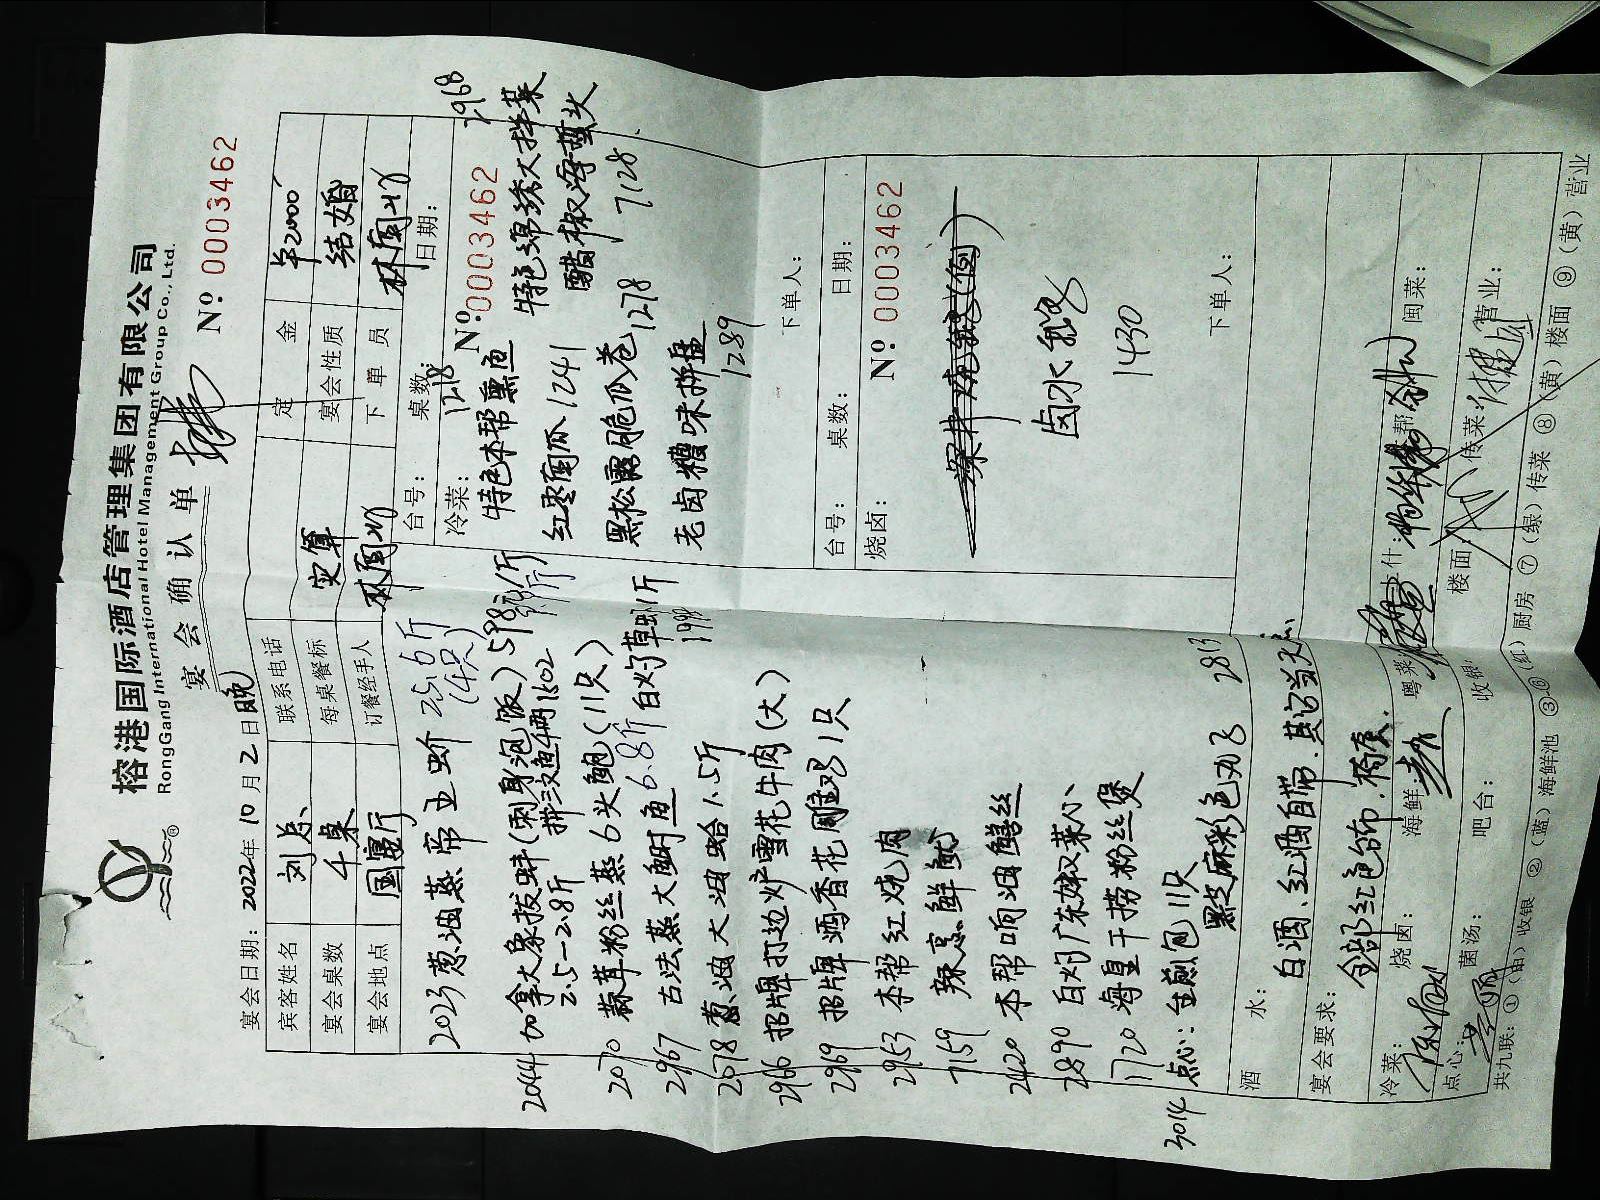 榕港国际酒店管理集团有限公司
RongGang International Hotel Management Group Co., Ltd.
宴会确认单
№ 0003462
宴会日期: 2022年10月2日晚
宾客姓名 刘总 联系电话 定金 ¥2000
宴会桌数 4桌 每桌餐标 实算 宴会性质 结婚
宴会地点 国宴厅 订餐经手人 下单员
2023 葱油蒸帝王蚧 2.5.6斤 (4只)
2044 加拿大象拔蚌(刺身泡饭) 598元/斤
2.5-2.8斤 拼三文鱼4两1502
2070 蒜茸粉丝蒸6头鲍(11只)
2967 古法蒸大鲥鱼 6.8斤 白灼草虾1斤
2078 葱油大油蛤1.5斤 1998
2966 招牌打边炉雪花牛肉(大)
2969 招牌酒香花雕鸡1只
2953 本帮红烧肉
7159 辣烹鲜鱿
2420 本帮响油鳝丝
2890 白灼广东妹仔菜小
1720 海皇干捞粉丝煲
3014 点心: 生煎包11只
黑芝麻彩色丸子 2813
台号: 桌数: 日期:
冷菜: № 0003462
1218 2968
特色本帮熏鱼 特色锦绣大拌菜
红枣南瓜 1241 醋椒海蜇头
黑松露脆瓜卷 1278 7128
老卤糟味拼盘
1289
下单人:
台号: 桌数: 日期:
烧卤: № 0003462
卤水我
1430
下单人:
酒水: 白酒、红酒自带、其它当天点
宴会要求: 全部红色布
冷菜: 烧卤: 海鲜: 粤菜: 上什: 本帮: 闽菜:
点心: 菌汤: 吧台: 收银: 楼面: 传菜: 营业:
共九联: ①(白)收银 ②(蓝)海鲜池 ③⑥(红)厨房 ⑦(绿)传菜 ⑧(黄)楼面 ⑨(黄)营业